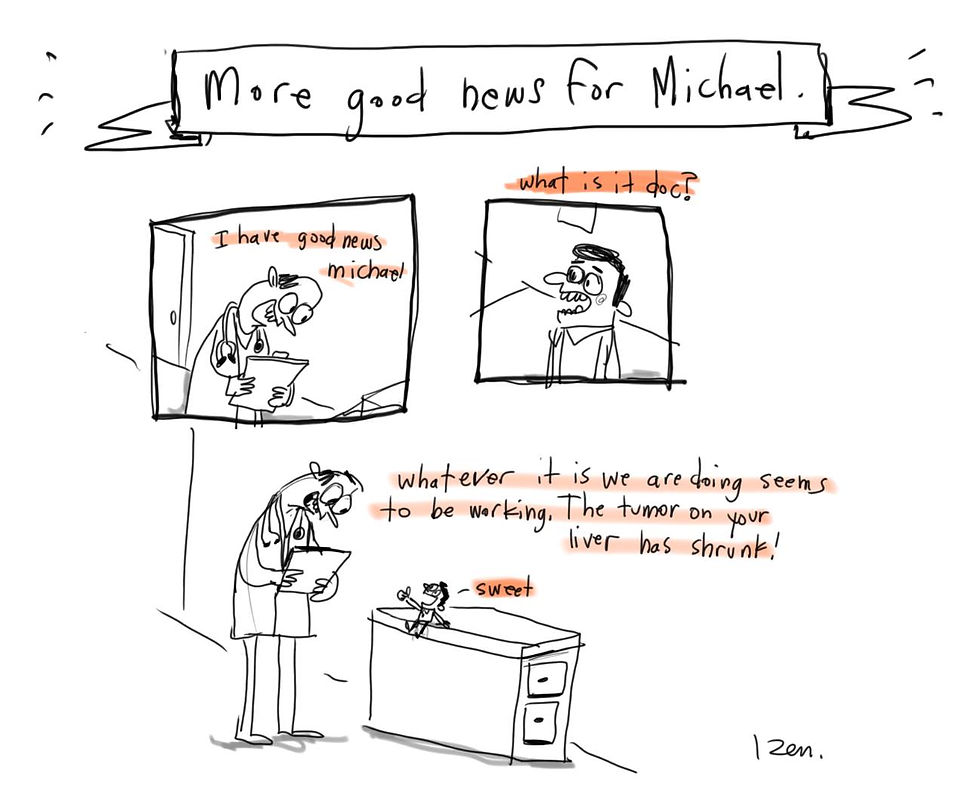 More good news for Michael.
I have good news
michael
what is it doc?
whatever it is we are doing seems
to be working. The tumor on your
liver has shrunk!
sweet
Izen.